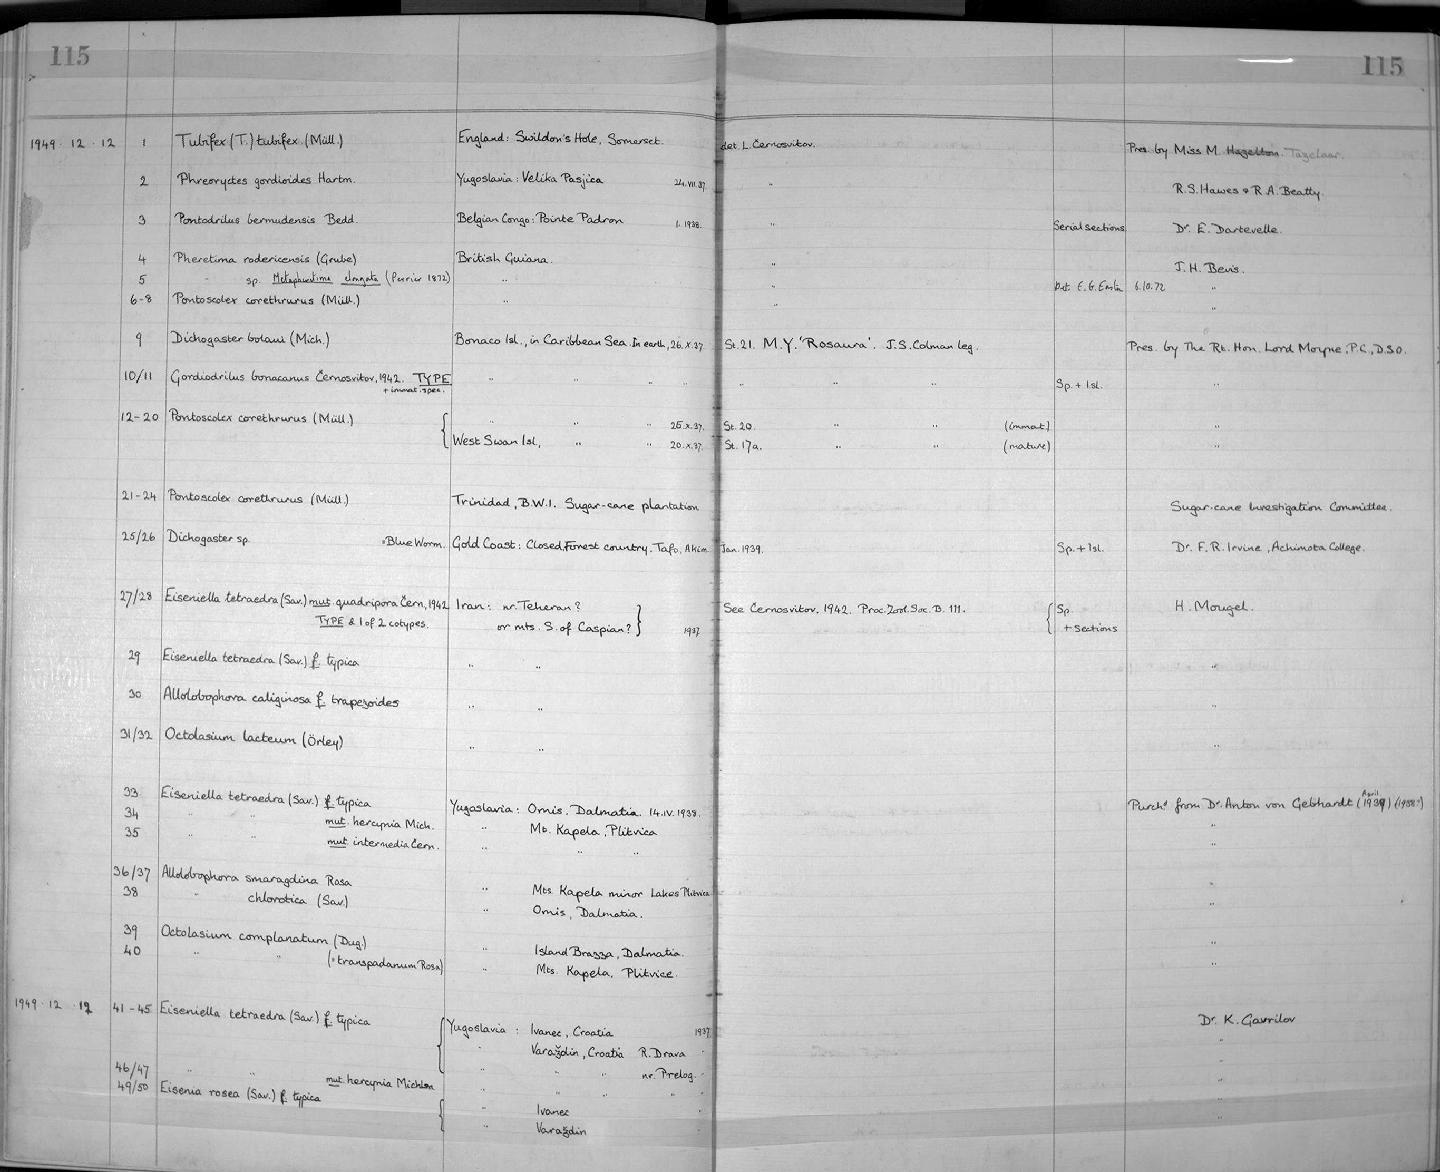 115 115
1949 . 12 . 12 1 Tubifex (T.) tubifex (Müll.) England: Swildon's Hole, Somerset. det. L. Černosvitov. Pres. by Miss M. Hazelton. Tazelaar.
2 Phreoryctes gordioides Hartm. Yugoslavia: Velika Pasjica 24.VII.37. " R.S. Hawes & R.A. Beatty.
3 Pontodrilus bermudensis Bedd. Belgian Congo: Pointe Padron 1. 1938. " Serial sections Dr. E. Dartevelle.
4 Pheretima rodericensis (Grube) British Guiana. " J.H. Bevis.
5 " sp. Metapheretima elongata (Perrier 1872) " " Det. E.G. Easton 6.10.72 "
6-8 Pontoscolex corethrurus (Müll.) " " "
9 Dichogaster bolaui (Mich.) Bonaco Isl., in Caribbean Sea. In earth, 26.x.37. St. 21. M.Y. 'Rosaura'. J.S. Colman leg. Pres. by The Rt. Hon. Lord Moyne, P.C., D.S.O.
10/11 Gordiodrilus bonacanus Černosvitov, 1942. TYPE " " " " " " Sp. + 1sl. "
+ immat. spec.
12-20 Pontoscolex corethrurus (Müll.) { " " " 25.x.37. St. 20. " " (immat.) "
West Swan Isl., " " 20.x.37. St. 17a. " " (mature) "
21-24 Pontoscolex corethrurus (Müll.) Trinidad, B.W.I. Sugar-cane plantation Sugar-cane Investigation Committee.
25/26 Dichogaster sp. "Blue Worm. Gold Coast: Closed Forest country. Tafo, Akim Jan. 1939. Sp. + 1sl. Dr. F.R. Irvine, Achimota College.
27/28 Eiseniella tetraedra (Sav.) mut. quadripora Čern, 1942 Iran: nr. Teheran? } See Černosvitov, 1942. Proc. Zool. Soc. B. 111. { Sp. H. Mougel.
TYPE & 1 of 2 cotypes. or mts. S. of Caspian? 1937 + Sections
29 Eiseniella tetraedra (Sav.) f. typica " " "
30 Allolobophora caliginosa f. trapezoides " " "
31/32 Octolasium lacteum (Örley) " " "
33 Eiseniella tetraedra (Sav.) f. typica Yugoslavia: Omis, Dalmatia. 14.IV.1938. Purchd. from Dr. Anton von Gebhardt (April 1939) (1938?)
34 " " mut. hercynia Mich. " Mt. Kapela, Plitvica "
35 " " mut. intermedia Čern. " " " "
36/37 Allolobophora smaragdina Rosa " Mts. Kapela minor Lakes Plitvica "
38 " chlorotica (Sav.) " Omis, Dalmatia. "
39 Octolasium complanatum (Dug.) " Island Brazza, Dalmatia. "
40 " " (= transpadanum Rosa) " Mts. Kapela, Plitvice. "
1949 . 12 . 12 41-45 Eiseniella tetraedra (Sav.) f. typica { Yugoslavia: Ivanec, Croatia 1937. Dr. K. Gavrilov
" Varaždin, Croatia R. Drava " "
46/47 " " mut. hercynia Michlsn " " " nr. Prelog. " "
49/50 Eisenia rosea (Sav.) f. typica " " " " " "
{ " Ivanec " "
" Varaždin "